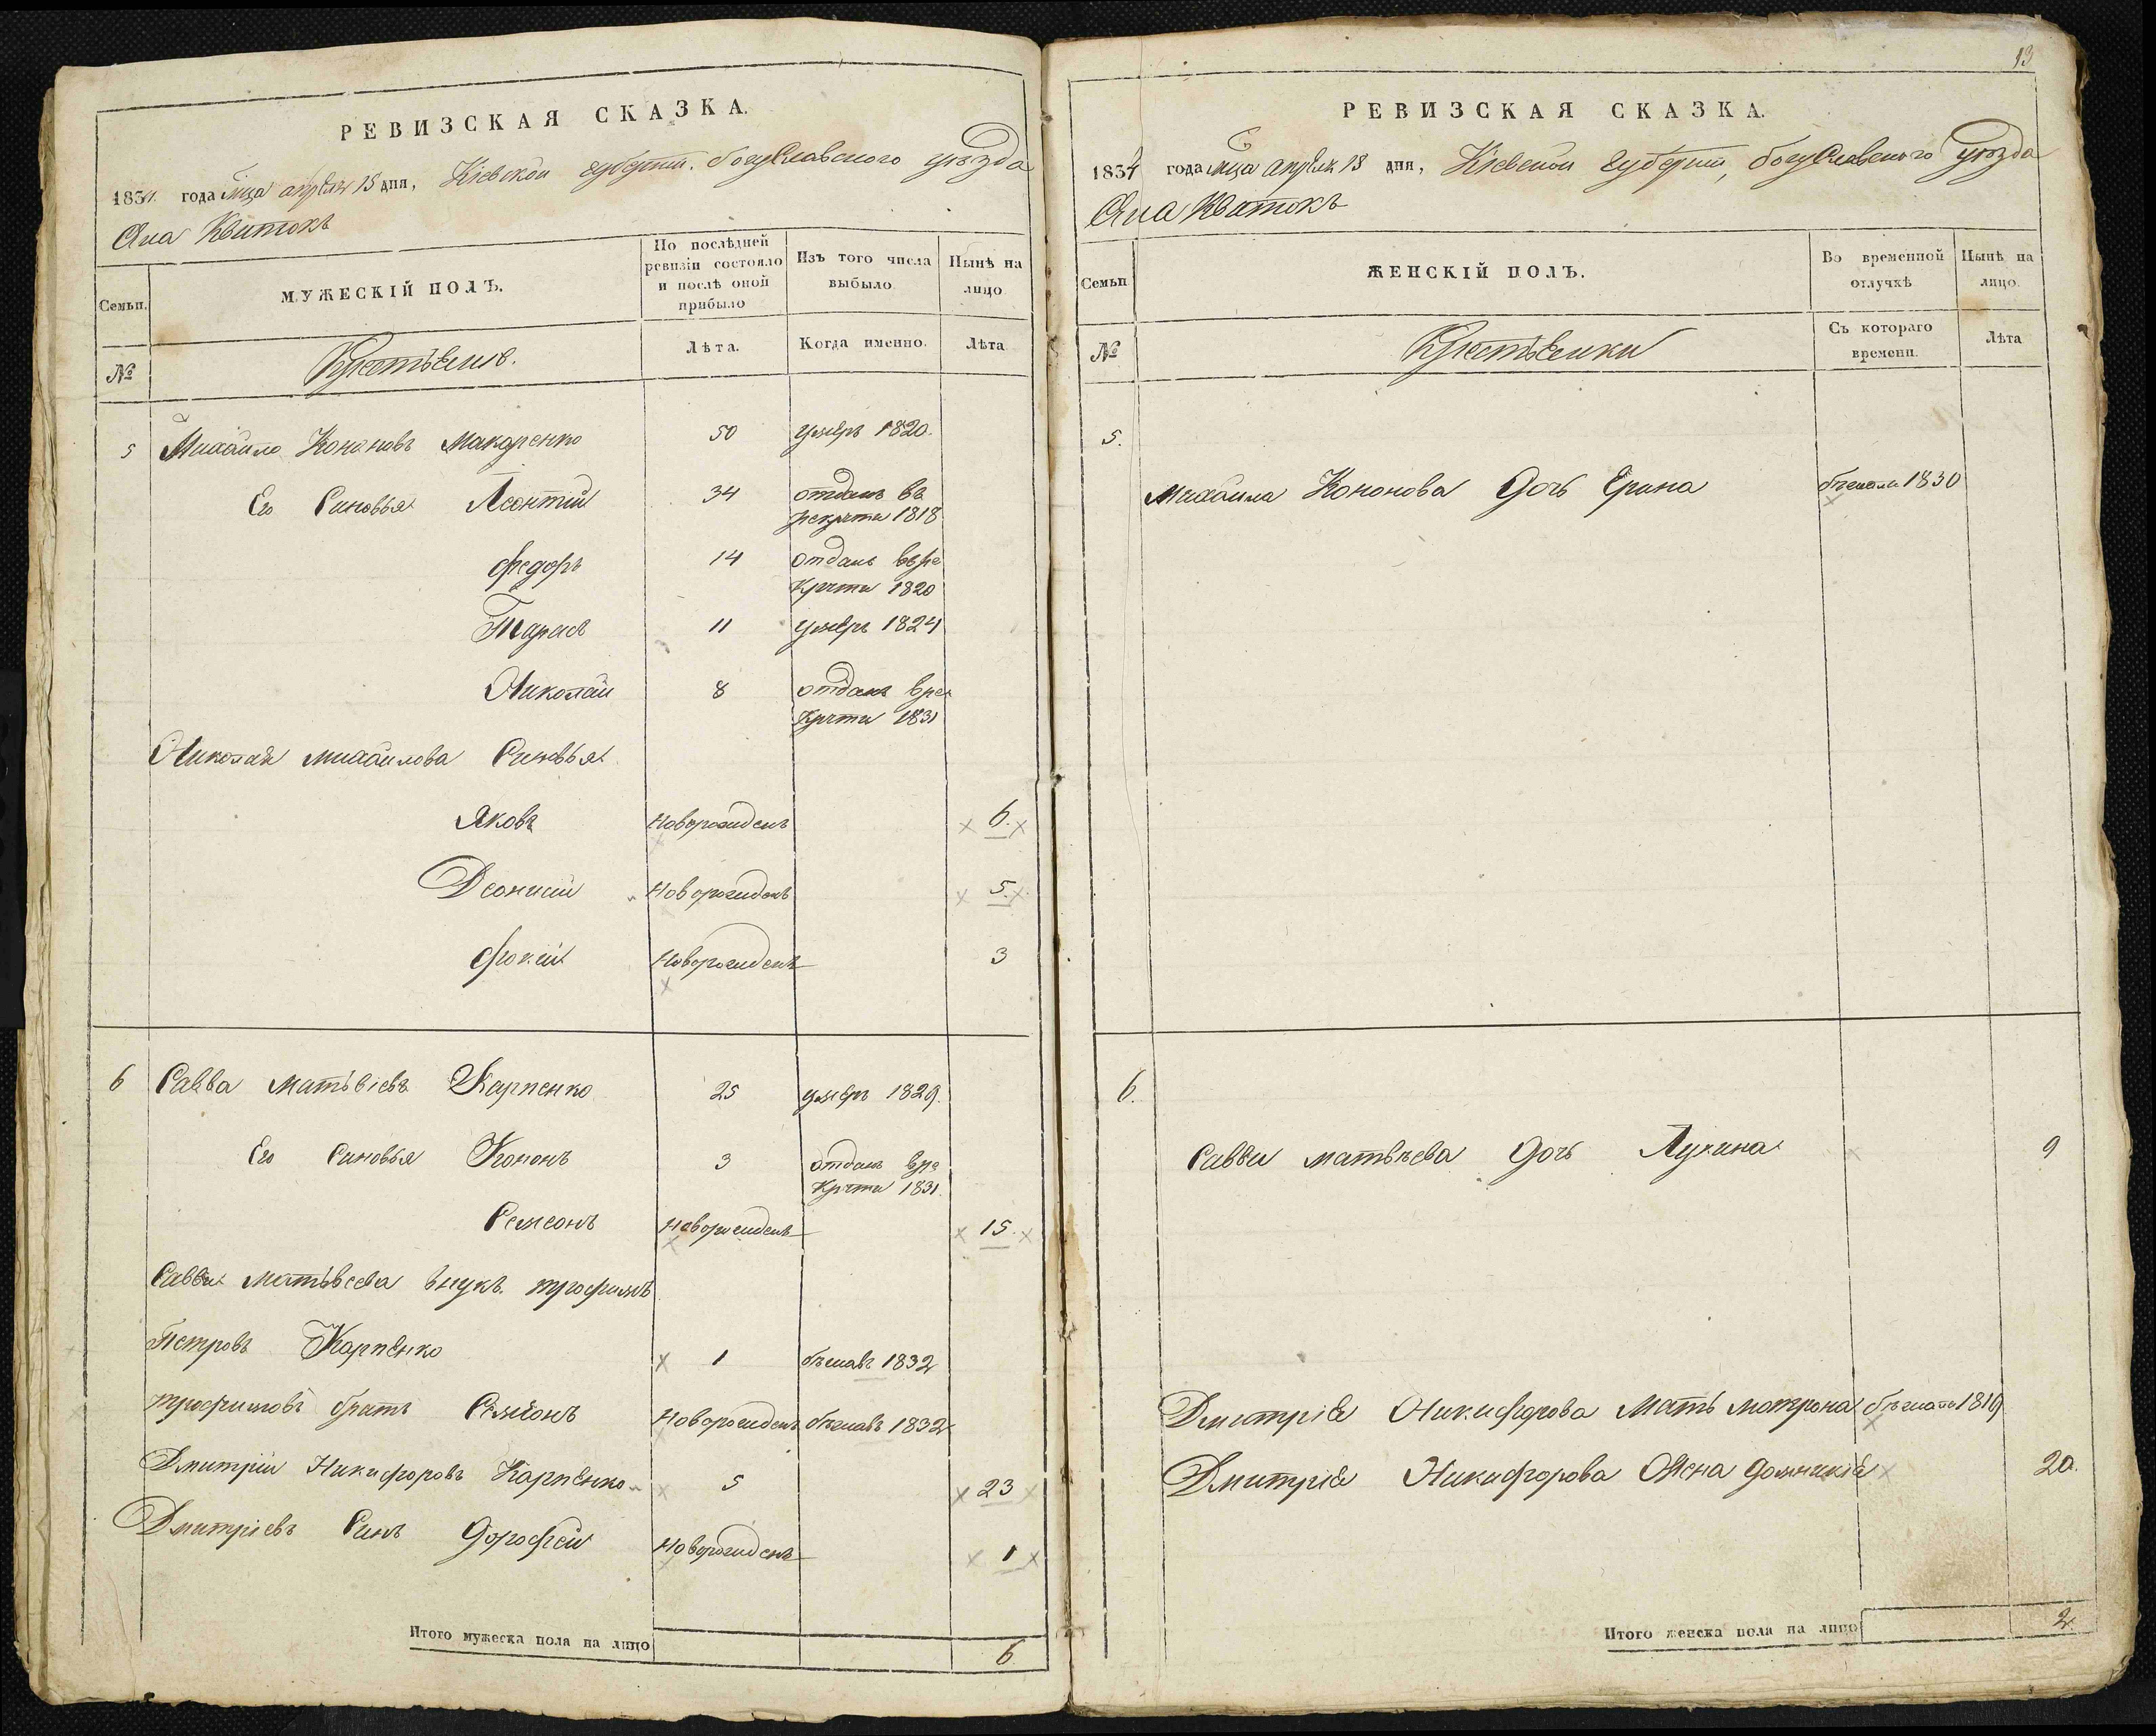 РЕВИЗСКАЯ СКАЗКА.
1834. года мца апреля 18 дня, Кіевской губерніи. богуславского уезда
Яна Квитокъ
Семьи. МУЖЕСКІЙ ПОЛЪ. По послѣдней ревизіи состояло и послѣ оной прибыло Изъ того числа выбыло Нынѣ на лицо
№ Лѣта. Когда именно. Лѣта
5 Михайло Кононовъ Макаренко 50 умеръ 1820.
Его Синовья Леонтій 34 отданъ въ
рекруты 1818
Федоръ 14 отданъ вре
круты 1820
Тарасъ 11 умеръ 1824
Николай 8 отданъ вре
круты 1831
Николая михайлова Синовья
Яковъ Новорожденъ 6.
Деонисій Новорожденъ 5.
Фокій Новорожденъ 3
6 Савва Матвіевъ Карпенко 25 умеръ 1829.
Его Синовья Кононъ 3 отданъ вре
круты 1831.
Семеонъ Новорожденъ 15.
Саввы матвеева внукъ трофимъ
Петровъ Карпенко 1 бежавъ 1832
трофимовъ братъ Семіонъ Новорожденъ бежавъ 1832
Дмитрій Никифоровъ Карпенко 5 23
Дмитріевъ Синъ Дорофей Новорожденъ 1
Итого мужеска пола на лицо 6
13
РЕВИЗСКАЯ СКАЗКА.
1834 года мца апреля 18 дня, Кіевской губерніи, богуславского уезда
Яна Квитокъ
Семьи ЖЕНСКІЙ ПОЛЪ. Во временной отлучкѣ Нынѣ на лицо.
№ Съ котораго времени. Лѣта
5.
Михайла Кононова Дочь Ерина 1830
6.
Саввы матвѣева Дочь Лукина 9
Дмитрія Никифорова Мать мотрона 1819
Дмитрія Никифорова Жена 20.
Итого женска пола на лицо 2